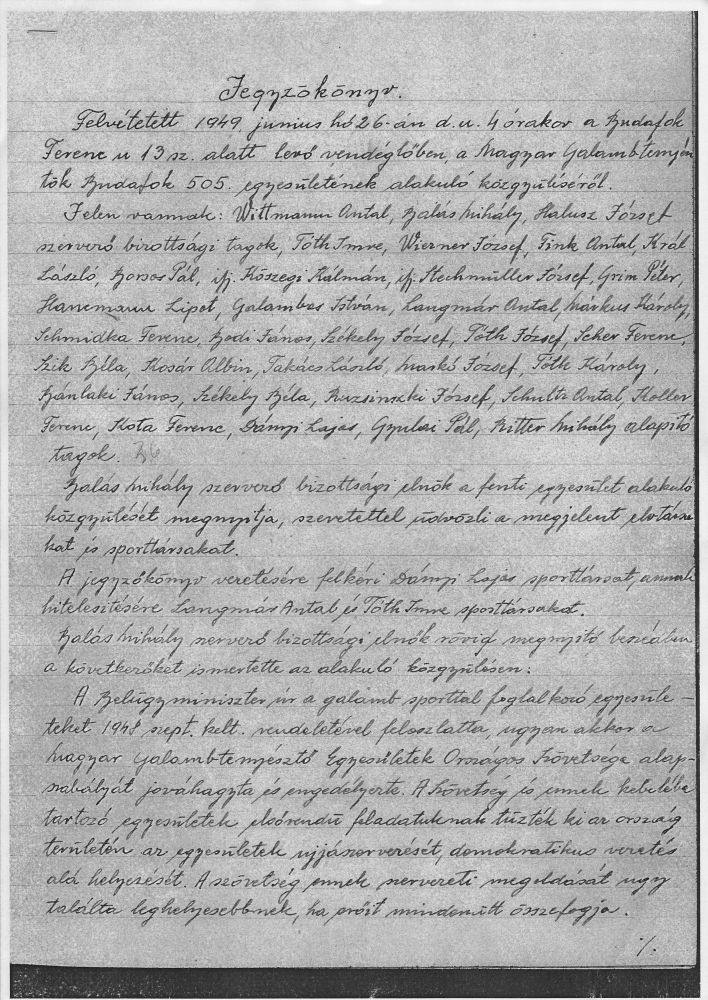 Jegyzőkönyv.
Felvétetett 1949 junius hó 26-án d.u. 4 órakor a Budafok
Ferenc u 13 sz. alatt levő vendéglőben, a Magyar Galambtenyész
tők Budafok 505. egyesületének alakuló közgyüléséről.
Jelen vannak: Wittmann Antal, Balás Mihály, Halusz József
szervező bizottsági tagok, Tóth Imre, Wierner József, Fink Antal, Král
László, Borsos Pál, ifj. Kőszegi Kálmán, ifj. Stechmüller József, Grim Péter,
Hanemann Lipót, Galambos István, Langmár Antal, Márkus Károly,
Schmidka Ferenc, Bodi János, Székely József, Tóth József, Scher Ferenc,
Szik Béla, Kosár Albin, Takács László, Maskó József, Tóth Károly,
Bánlaki János, Székely Béla, József, Schultz Antal, Holler
Ferenc, Kota Ferenc, Dányi Lajos, Gyulai Pál, Ritter Mihály alapitó
tagok.
Balás Mihály szervező bizottsági elnök a fenti egyesület alakuló
közgyülését megnyitja, szeretettel üdvözli a megjelent elvtársa
kat és sporttársakat.
A jegyzőkönyv vezetésére felkéri Dányi Lajos sporttársat, annak
hitelesitésére Langmás Antal és Tóth Imre sporttársakat.
Balás Mihály szervező bizottsági elnök rövid megnyitó beszédben
a következőket ismertette az alakuló közgyülésen:
A Belügyminiszter úr a galamb sporttal foglalkozó egyesüle-
teket 1948 szept. kelt. rendeletével feloszlatta, ugyan akkor a
Magyar Galambtenyésztő Egyesületek Országos Szövetsége alap-
szabályát jováhagyta és engedélyezte. A Szövetség és ennek kebelébe
tartozó egyesületek elsőrendü feladatuknak tüzték ki az ország
területén az egyesületek ujjászervezését, demokratikus vezetés
alá helyezését. A szövetség ennek szervezeti megoldását ugy
találta leghelyesebbnek, ha erőit mindenütt összefogja.
./.